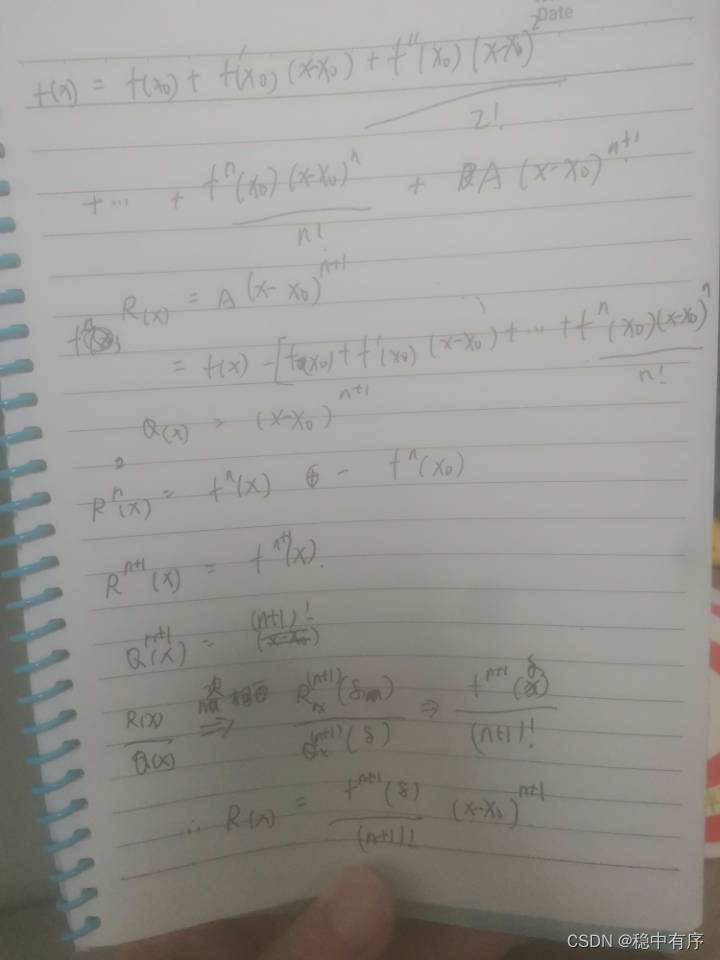 Date
f(x) = f(x₀) + f'(x₀)(x-x₀) + f''(x₀)(x-x₀)² / 2!
+ ... + fⁿ(x₀)(x-x₀)ⁿ / n! + A(x-x₀)ⁿ⁺¹
R(x) = A(x-x₀)ⁿ⁺¹
= f(x) - [f(x₀) + f'(x₀)(x-x₀) + ... + fⁿ(x₀)(x-x₀)ⁿ / n!
Q(x) = (x-x₀)ⁿ⁺¹
Rⁿ(x) = fⁿ(x) - fⁿ(x₀)
Rⁿ⁺¹(x) = fⁿ⁺¹(x).
Qⁿ⁺¹(x) = (n+1)!
R(x) / Q(x) ⇒ R⁽ⁿ⁺¹⁾(δ) / Q⁽ⁿ⁺¹⁾(δ) ⇒ fⁿ⁺¹(δ) / (n+1)!
∴ R(x) = fⁿ⁺¹(δ) / (n+1)! (x-x₀)ⁿ⁺¹
CSDN @稳中有序